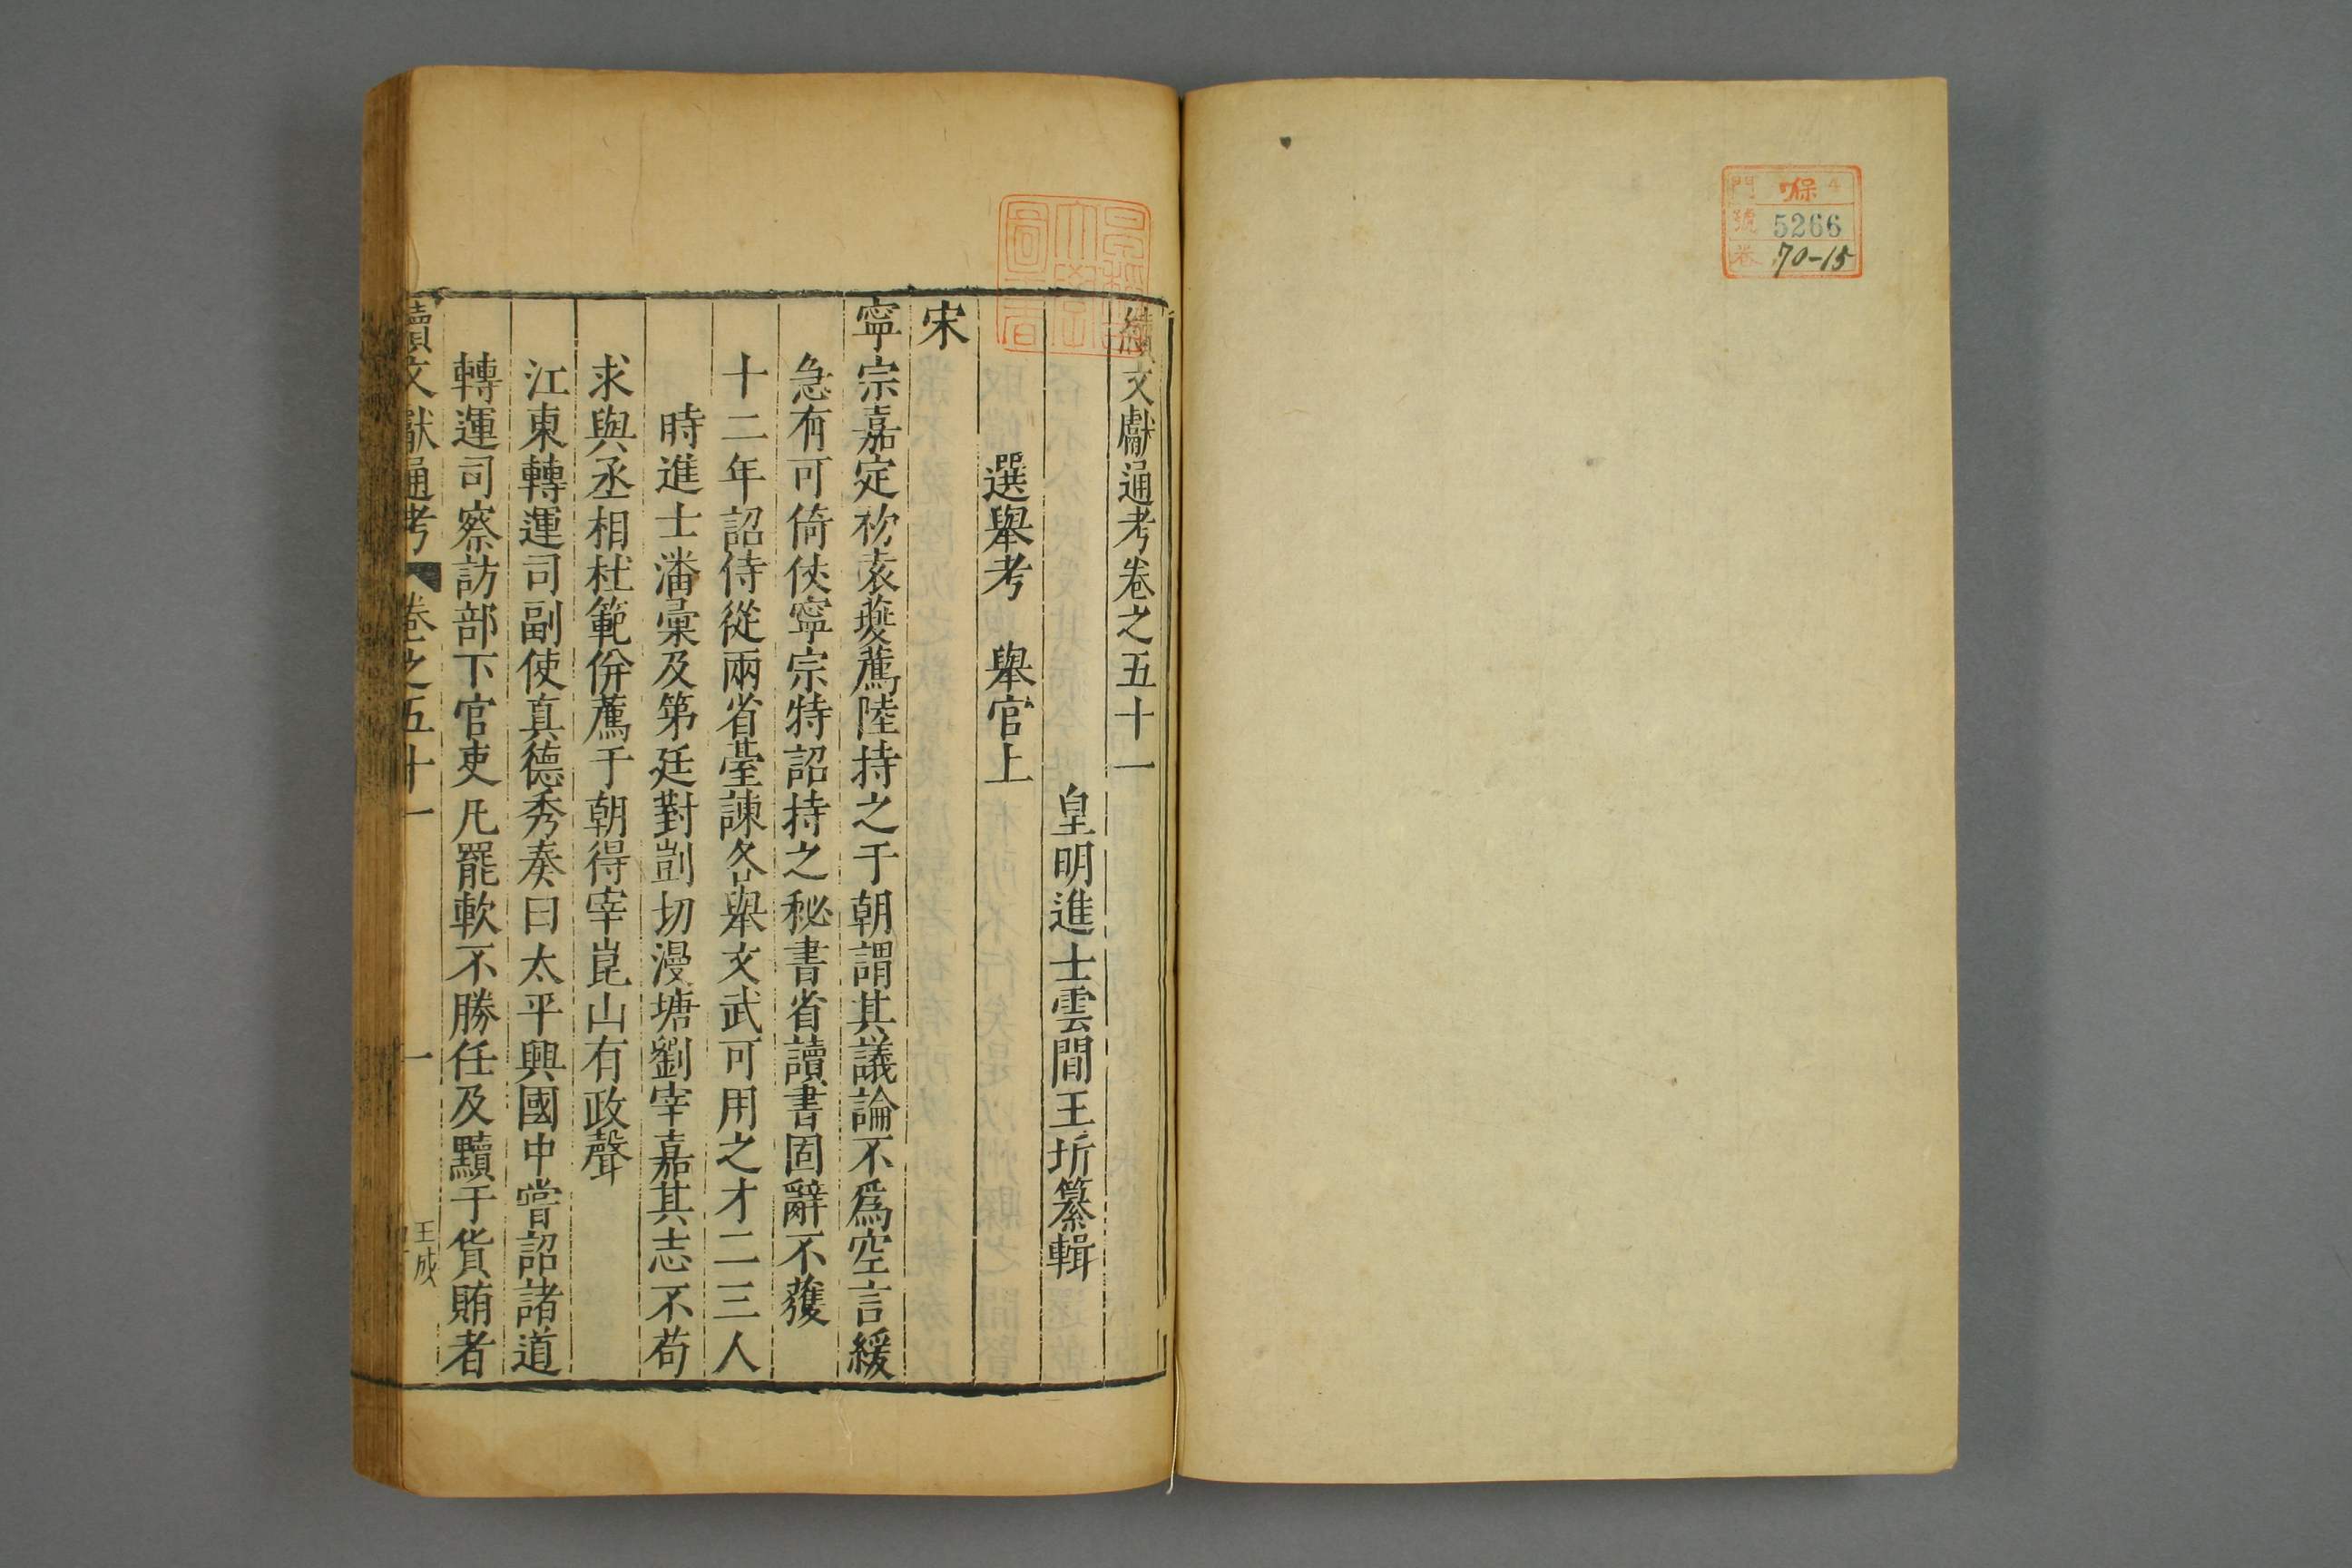 門 ワ保 4
號 5266
卷 70-15
續文獻通考卷之五十一
皇明進士雲間王圻纂輯
選舉考 舉官上
宋
寧宗嘉定初袁燮薦陸持之于朝謂其議論不爲空言緩
急有可倚伏寧宗特詔持之秘書省讀書固辭不獲
十二年詔侍從兩省臺諫各舉文武可用之才二三人
時進士潘彙及第廷對剴切漫塘劉宰嘉其志不苟
求與丞相杜範併薦于朝得宰崑山有政聲
江東轉運司副使真德秀奏曰太平興國中嘗詔諸道
轉運司察訪部下官吏凡罷軟不勝任及黷于貨賄者
續文獻通考 卷之五十一 一 王成